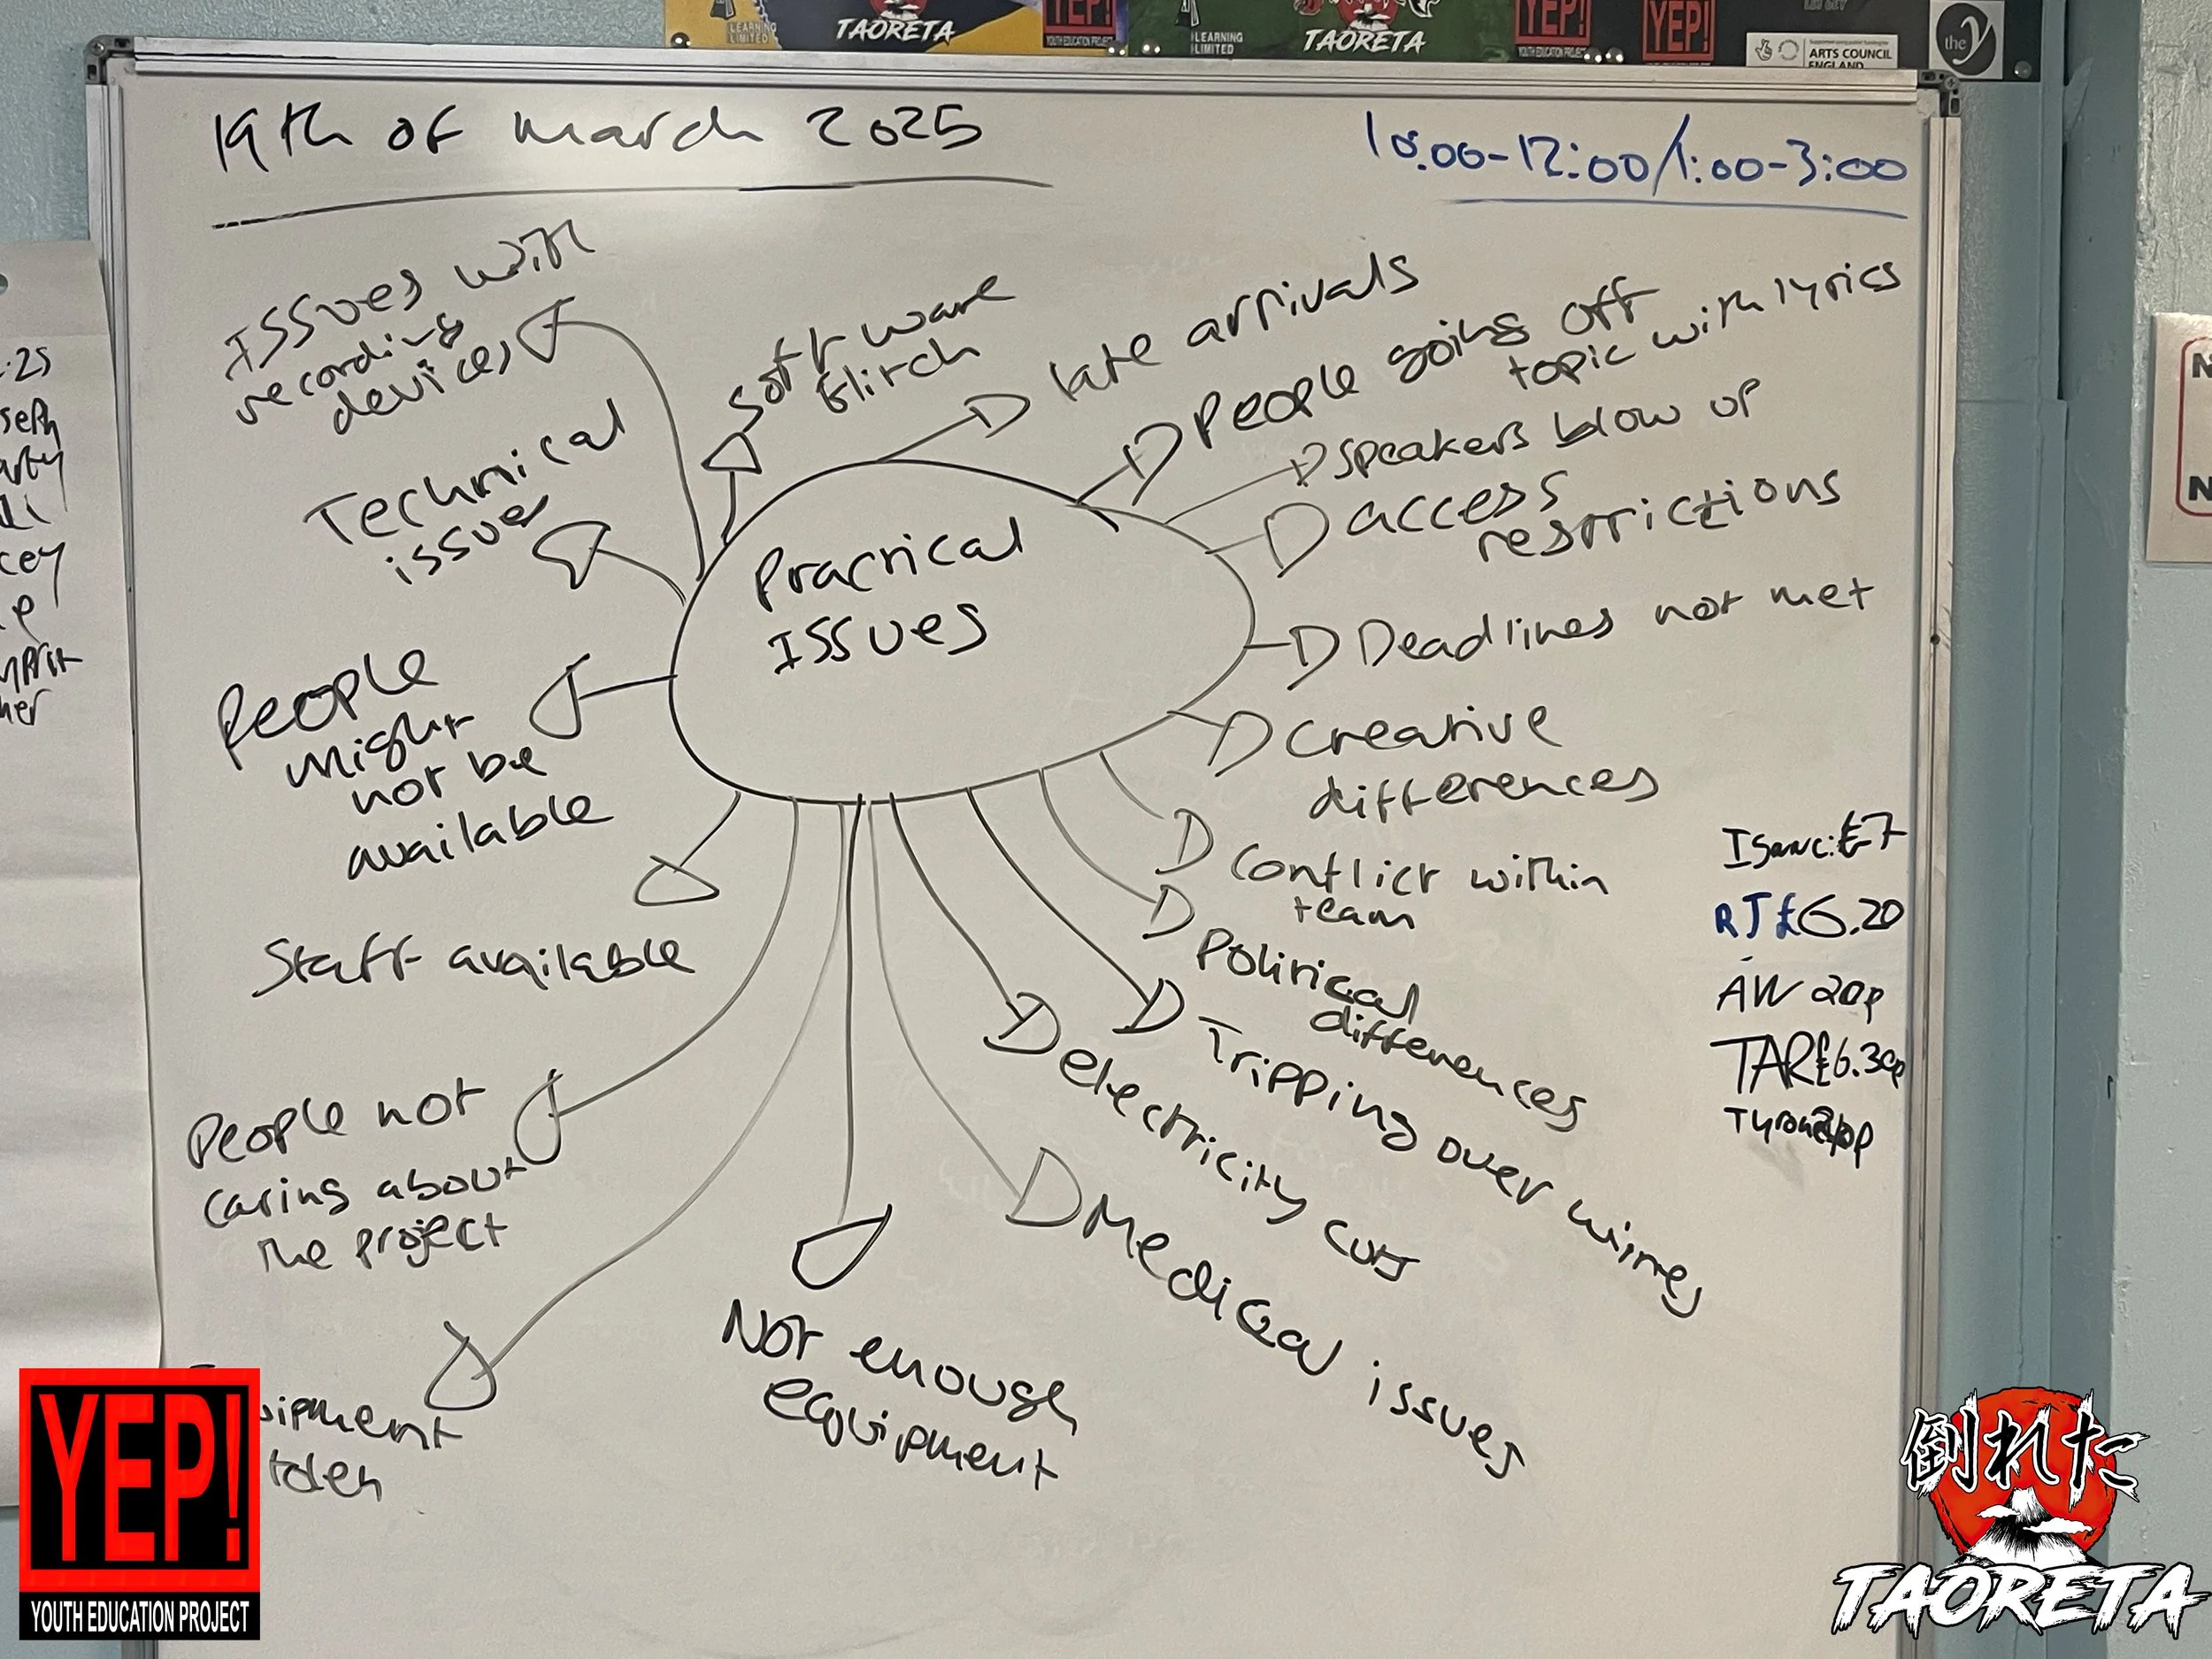 LEARNING
LIMITED
TAORETA
YEP!
YOUTH EDUCATION PROJECT
LEARNING
LIMITED
TAORETA
YEP!
YEP!
ARTS COUNCIL
ENGLAND
the y
19th of march 2025
10:00-12:00/1:00-3:00
Issues with
recording
devices
software
Glitch
late arrivals
People going off
topic with lyrics
speakers blow up
Technical
issues
access
restrictions
Practical
Issues
Deadlines not met
People
might
not be
available
Creative
differences
Conflict within
team
Staff available
Political
differences
Tripping over wires
electricity cuts
Medical issues
People not
caring about
the project
Not enough
equipment
uipment
tolen
Isaac: £7
RJ £6.20
AW 20p
TAR £6.30p
N
N
YEP!
YOUTH EDUCATION PROJECT
倒れた
TAORETA